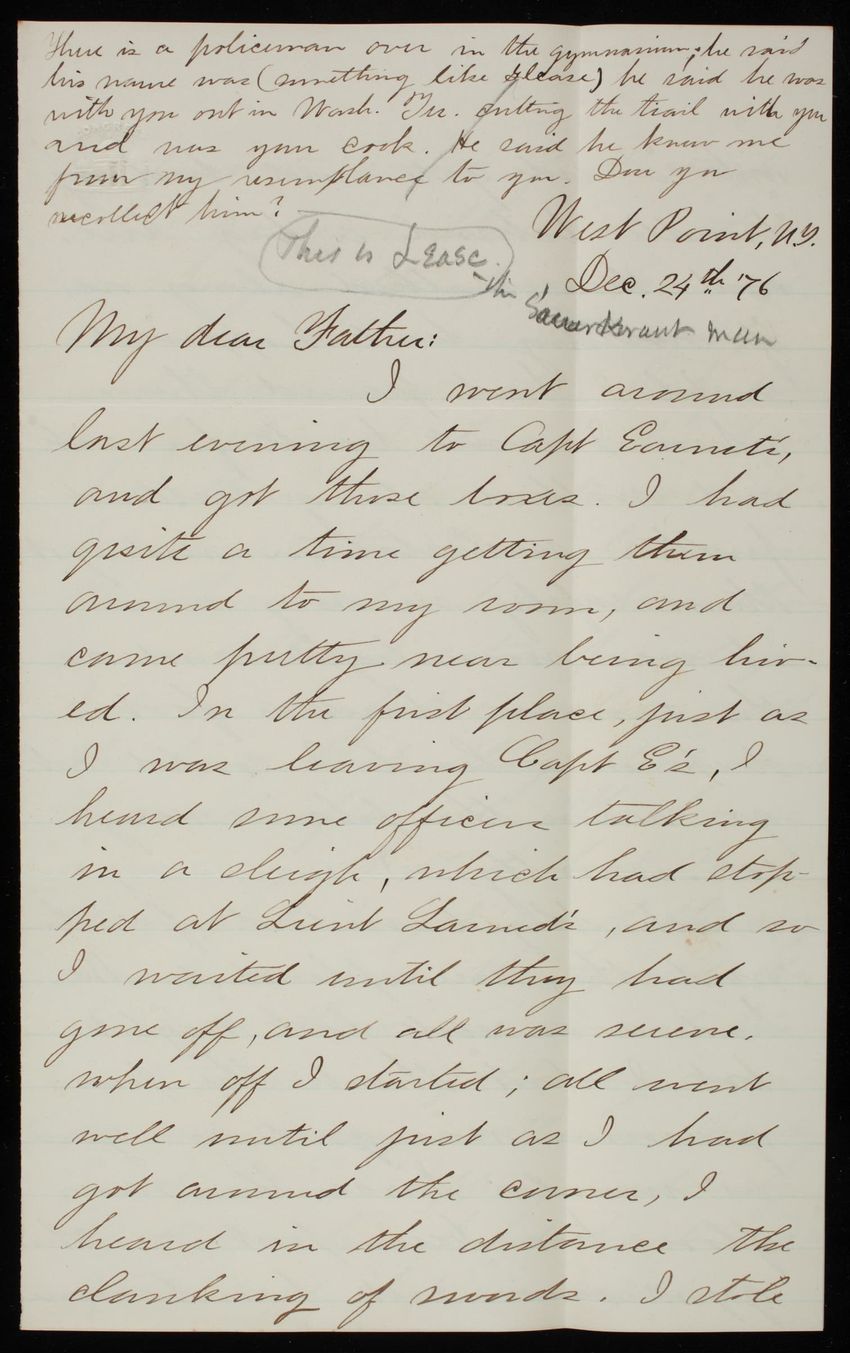 There is a policeman over in the gymnasium; he said
his name was (something like please) he said he was
with you out in Wash. Ter. cutting the trail with you
and was your cook. He said he knew me
from my resemblance to you. Don you
recollect him?
This is Lease.
the
Sauerkraut man
West Point, N.Y.
Dec. 24th '76
My dear Father:
I went around
last evening to Capt
and got those boxes. I had
quite a time getting them
around to my room, and
came pretty near being hiv-
ed. In the first place, just as
I was leaving Capt E's, I
heard some officers talking
in a sleigh, which had stop-
ped at Lieut Larned's, and so
I waited until they had
gone off, and all was serene.
when off I started; all went
well until just as I had
got around the corner, I
heard in the distance the
clanking of swords. I stole